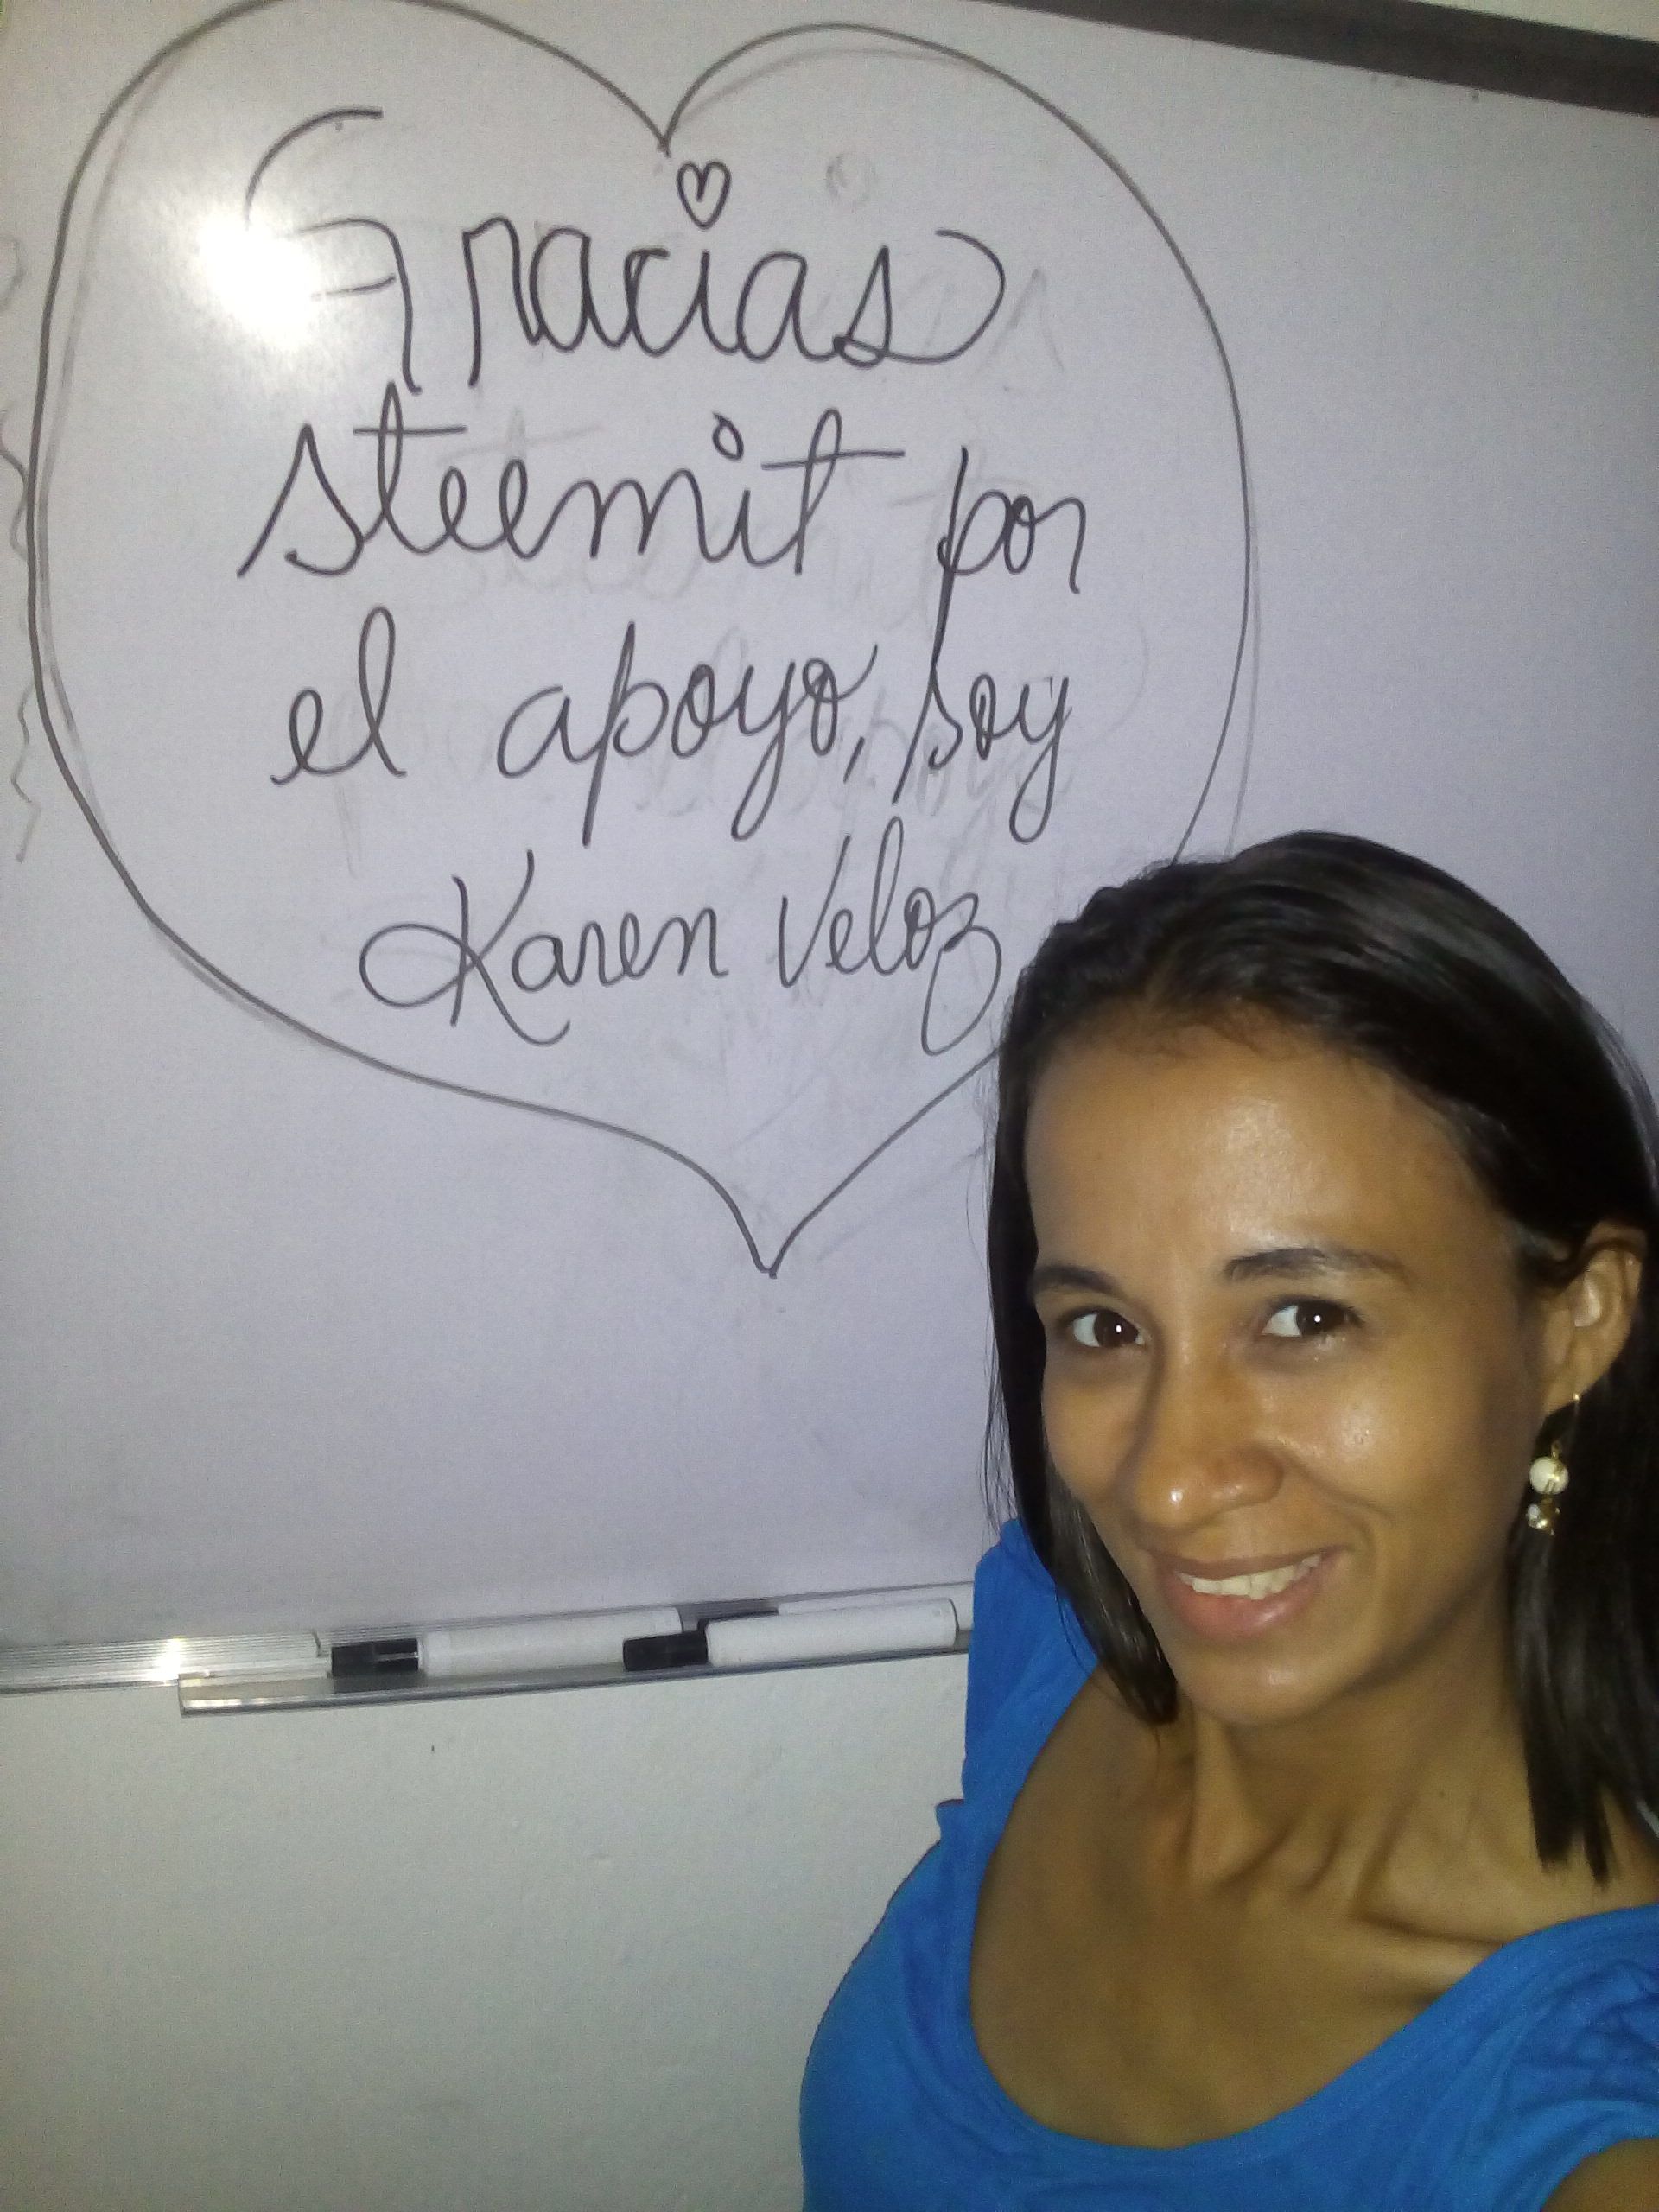 Gracias
steemit por
el apoyo, soy
Karen Veloz